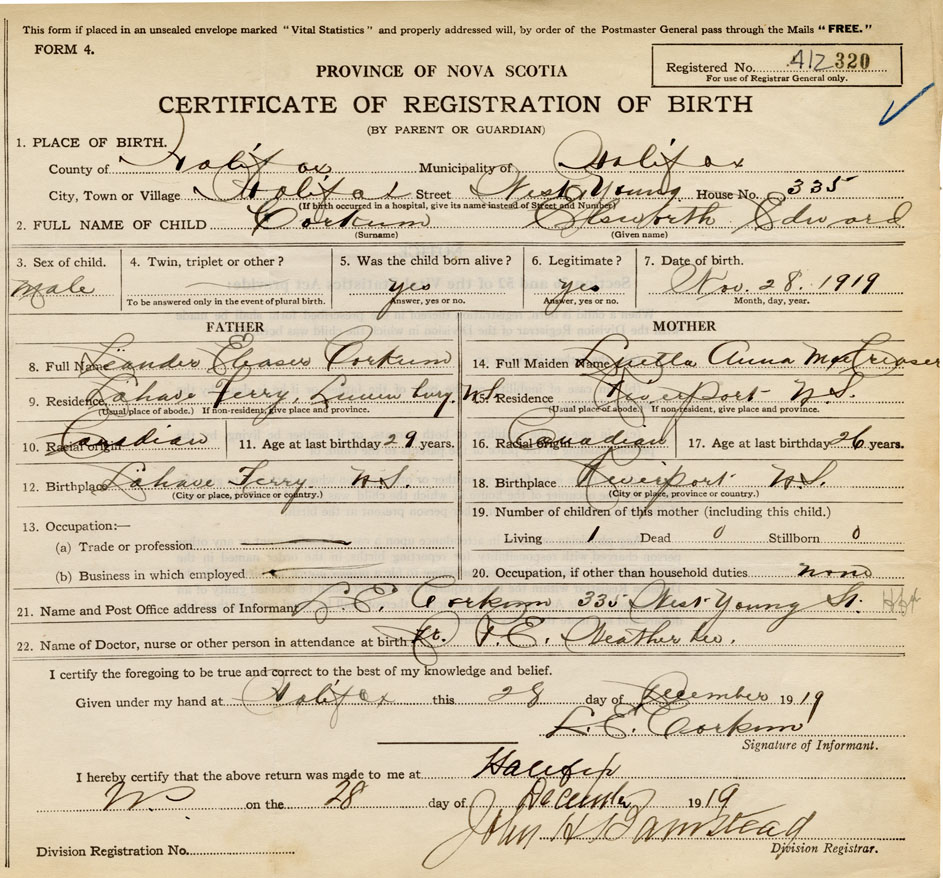 This form if placed in an unsealed envelope marked "Vital Statistics" and properly addressed will, by order of the Postmaster General pass through the Mails "FREE."
FORM 4.
Registered No. 412 320
For use of Registrar General only.
PROVINCE OF NOVA SCOTIA
CERTIFICATE OF REGISTRATION OF BIRTH
(BY PARENT OR GUARDIAN)
1. PLACE OF BIRTH.
County of Halifax Municipality of Halifax
City, Town or Village Halifax Street West Young House No. 335
(If birth occurred in a hospital, give its name instead of Street and Number)
2. FULL NAME OF CHILD Corkum Elsworth Edward
(Surname) (Given name)
3. Sex of child. 4. Twin, triplet or other? 5. Was the child born alive? 6. Legitimate? 7. Date of birth.
Male yes yes Nov. 28. 1919
To be answered only in the event of plural birth. Answer, yes or no. Answer, yes or no. Month, day, year.
FATHER
8. Full Name Leander Eleaser Corkum
9. Residence Lahave Ferry, Lunenburg N.S.
(Usual place of abode.) If non-resident, give place and province.
10. Racial origin Canadian 11. Age at last birthday 29 years.
12. Birthplace Lahave Ferry N.S.
(City or place, province or country.)
13. Occupation:—
(a) Trade or profession
(b) Business in which employed
MOTHER
14. Full Maiden Name Anna
15. Residence Riverport N.S.
(Usual place of abode.) If non-resident, give place and province.
16. Racial origin Canadian 17. Age at last birthday 26 years.
18. Birthplace Riverport N.S.
(City or place, province or country.)
19. Number of children of this mother (including this child.)
Living 1 Dead 0 Stillborn 0
20. Occupation, if other than household duties none
21. Name and Post Office address of Informant L. E. Corkum 335 West Young St. Hfx
22. Name of Doctor, nurse or other person in attendance at birth F. E.
I certify the foregoing to be true and correct to the best of my knowledge and belief.
Given under my hand at Halifax this 28 day of December 1919
L. E. Corkum
Signature of Informant.
I hereby certify that the above return was made to me at Halifax
N.S. on the 28 day of December 1919
John H Barnstead
Division Registration No. Division Registrar.